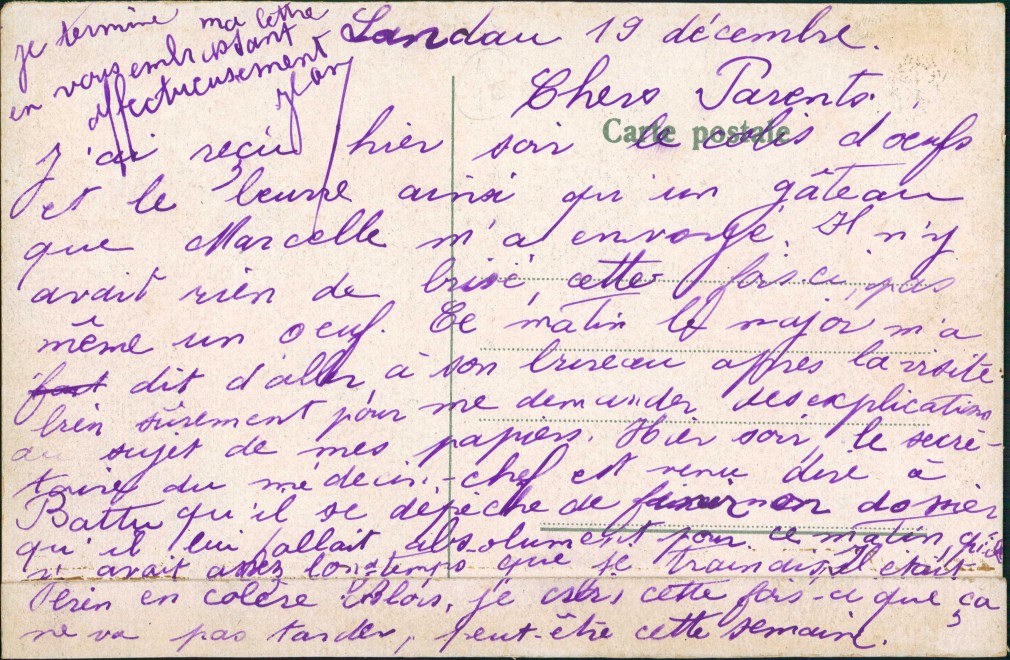 Landau 19 décembre.
Chers Parents.
Carte postale
J'ai reçu hier soir le colis d'oeufs
et le beurre ainsi qu'un gâteau
que Marcelle m'a envoyé. Il n'y
avait rien de brisé, cette fois ci, pas
même un oeuf. Ce matin le major m'a
fait dit d'aller à son bureau après la visite
bien sûrement pour me demander des explications
au sujet de mes papiers. Hier soir, le secré-
taire du médecin-chef est venu dire à
Battu qu'il se dépêche de finir mon dossier
qu'il lui fallait absolument pour ce matin, qu'il
y avait assez longtemps que je traînais. Il était
en colère Blois, je crois cette fois-ci que ça
ne va pas tarder, peut-être cette semaine.
je termine ma lettre
en vous embrassant
affectueusement